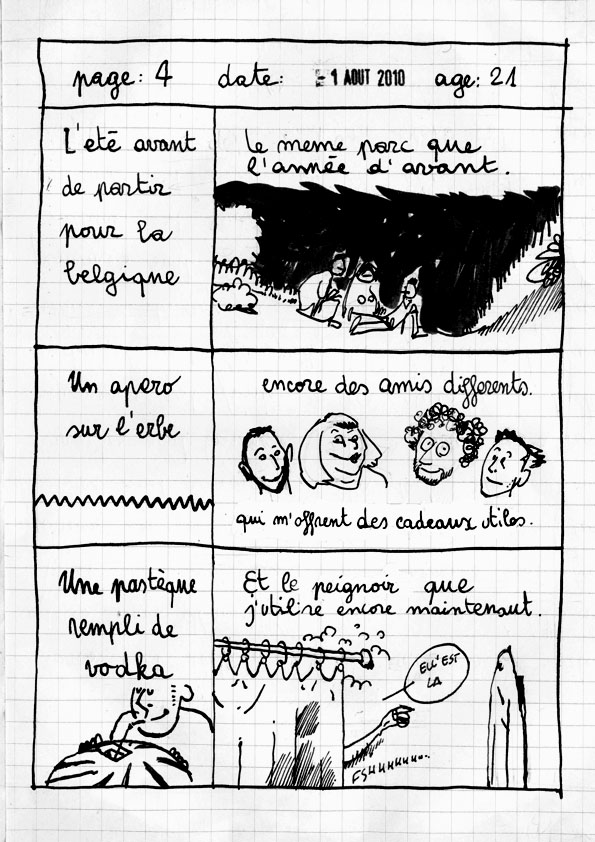 page: 4 date: - 1 AOUT 2010 age: 21
L'eté avant
de partir
pour la
belgique
Le meme parc que
l'année d'avant.
Un apero
sur l'erbe
encore des amis differents.
qui m'offrent des cadeaux utiles.
Une pastèque
rempli de
vodka
Et le peignoir que
j'utilise encore maintenant.
ELL'EST
LA
FSHHHHHHH...